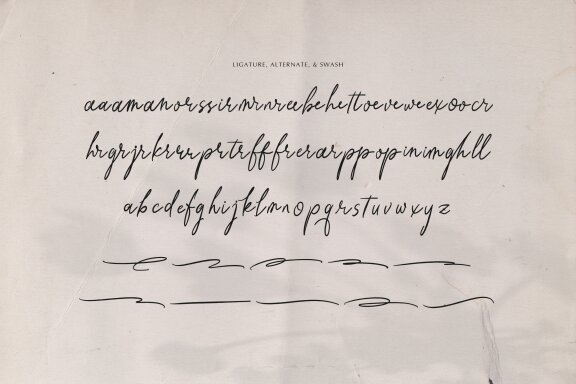 LIGATURE, ALTERNATE, & SWASH
aaamanorssirnrnrreebehettoeveweexoocr
hrgrjrkrrrrprtrfffrerarppopinimghll
abcdefghijklmnopqrstuvwxyz